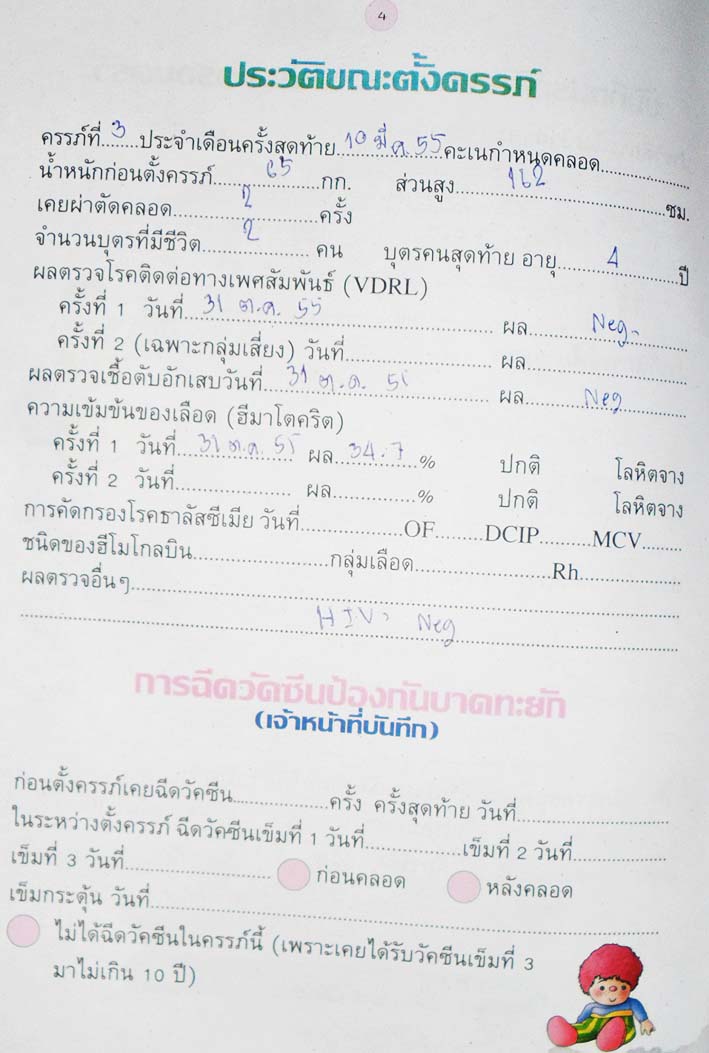 4
ประวัติขณะตั้งครรภ์
ครรภ์ที่ 3 ประจำเดือนครั้งสุดท้าย 10 มี.ค. 55 คะเนกำหนดคลอด
น้ำหนักก่อนตั้งครรภ์ 65 กก. ส่วนสูง 162 ซม.
เคยผ่าตัดคลอด 2 ครั้ง
จำนวนบุตรที่มีชีวิต 2 คน บุตรคนสุดท้าย อายุ 4 ปี
ผลตรวจโรคติดต่อทางเพศสัมพันธ์ (VDRL)
ครั้งที่ 1 วันที่ 31 ต.ค. 55 ผล Neg
ครั้งที่ 2 (เฉพาะกลุ่มเสี่ยง) วันที่ ผล
ผลตรวจเชื้อตับอักเสบวันที่ 31 ต.ค. 55 ผล Neg
ความเข้มข้นของเลือด (ฮีมาโตคริต)
ครั้งที่ 1 วันที่ 31 ต.ค. 55 ผล 34.7 % ปกติ โลหิตจาง
ครั้งที่ 2 วันที่ ผล % ปกติ โลหิตจาง
การคัดกรองโรคธาลัสซีเมีย วันที่ OF DCIP MCV
ชนิดของฮีโมโกลบิน กลุ่มเลือด Rh
ผลตรวจอื่นๆ
HIV: Neg
การฉีดวัคซีนป้องกันบาดทะยัก
(เจ้าหน้าที่บันทึก)
ก่อนตั้งครรภ์เคยฉีดวัคซีน ครั้ง ครั้งสุดท้าย วันที่
ในระหว่างตั้งครรภ์ ฉีดวัคซีนเข็มที่ 1 วันที่ เข็มที่ 2 วันที่
เข็มที่ 3 วันที่ ก่อนคลอด หลังคลอด
เข็มกระตุ้น วันที่
ไม่ได้ฉีดวัคซีนในครรภ์นี้ (เพราะเคยได้รับวัคซีนเข็มที่ 3
มาไม่เกิน 10 ปี)